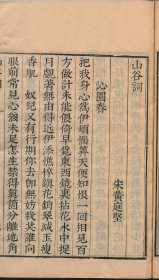 山谷詞
宋黃庭堅
沁園春
把我身心爲伊煩惱算天便知恨一回相見百
方做計未能偎倚早覓東西鏡裏拈花水中捉
月覷著無由得近伊添憔悴鎮花銷翠減玉瘦
香肌 奴兒又有行期你去卽無妨我共誰向
眼前常見心猶未足怎生禁得眞箇分離地角